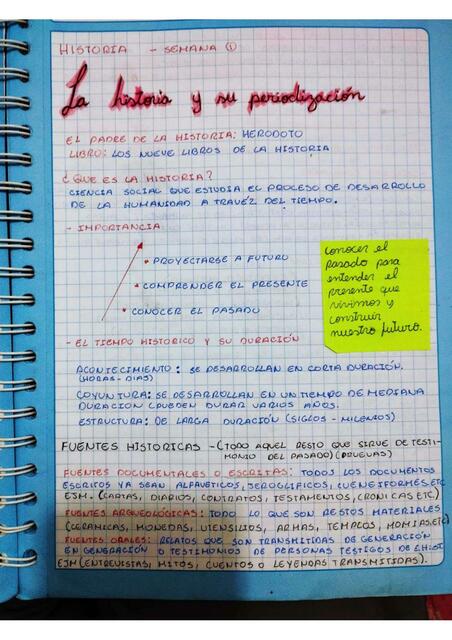 HISTORIA - SEMANA ①
La historia y su periodización
EL PADRE DE LA HISTORIA: HERODOTO
LIBRO: LOS NUEVE LIBROS DE LA HISTORIA
¿QUE ES LA HISTORIA?
CIENCIA SOCIAL QUE ESTUDIA EL PROCESO DE DESARROLLO
DE LA HUMANIDAD A TRAVÉZ DEL TIEMPO.
- IMPORTANCIA
• PROYECTARSE A FUTURO
• COMPRENDER EL PRESENTE
• CONOCER EL PASADO
conocer el
pasado para
entender el
presente que
vivimos y
construir
nuestro futuro.
- EL TIEMPO HISTORICO Y SU DURACIÓN
ACONTECIMIENTO: SE DESARROLLAN EN CORTA DURACIÓN.
(HORAS - DIAS)
COYUNTURA: SE DESARROLLAN EN UN TIEMPO DE MEDIANA
DURACION (PUEDEN DURAR VARIOS AÑOS.
ESTRUCTURA: DE LARGA DURACIÓN (SIGLOS - MILENIOS)
FUENTES HISTORICAS - (TODO AQUEL RESTO QUE SIRVE DE TESTI-
MONIO DEL PASADO) (PRUEVAS)
FUENTES DOCUMENTALES O ESCRITAS: TODOS LOS DOCUMENTOS
ESCRITOS YA SEAN ALFAVETICOS, JEROGLIFICOS, CUENEIFORMES.ETC
EJM. (CARTAS, DIARIOS, CONTRATOS, TESTAMENTOS, CRONICAS ETC.)
FUENTES ARQUEOLÓGICAS: TODO LO QUE SON RESTOS MATERIALES
(CERAMICAS, MONEDAS, UTENSILIOS, ARMAS, TEMPLOS, MOMIAS.ETC)
FUENTES ORALES: RELATOS QUE SON TRANSMITIDAS DE GENERACIÓN
EN GENERACIÓN O TESTIMONIOS DE PERSONAS TESTIGOS DE
EJM (ENTREVISTAS, MITOS, CUENTOS O LEYENDAS TRANSMITIDAS).